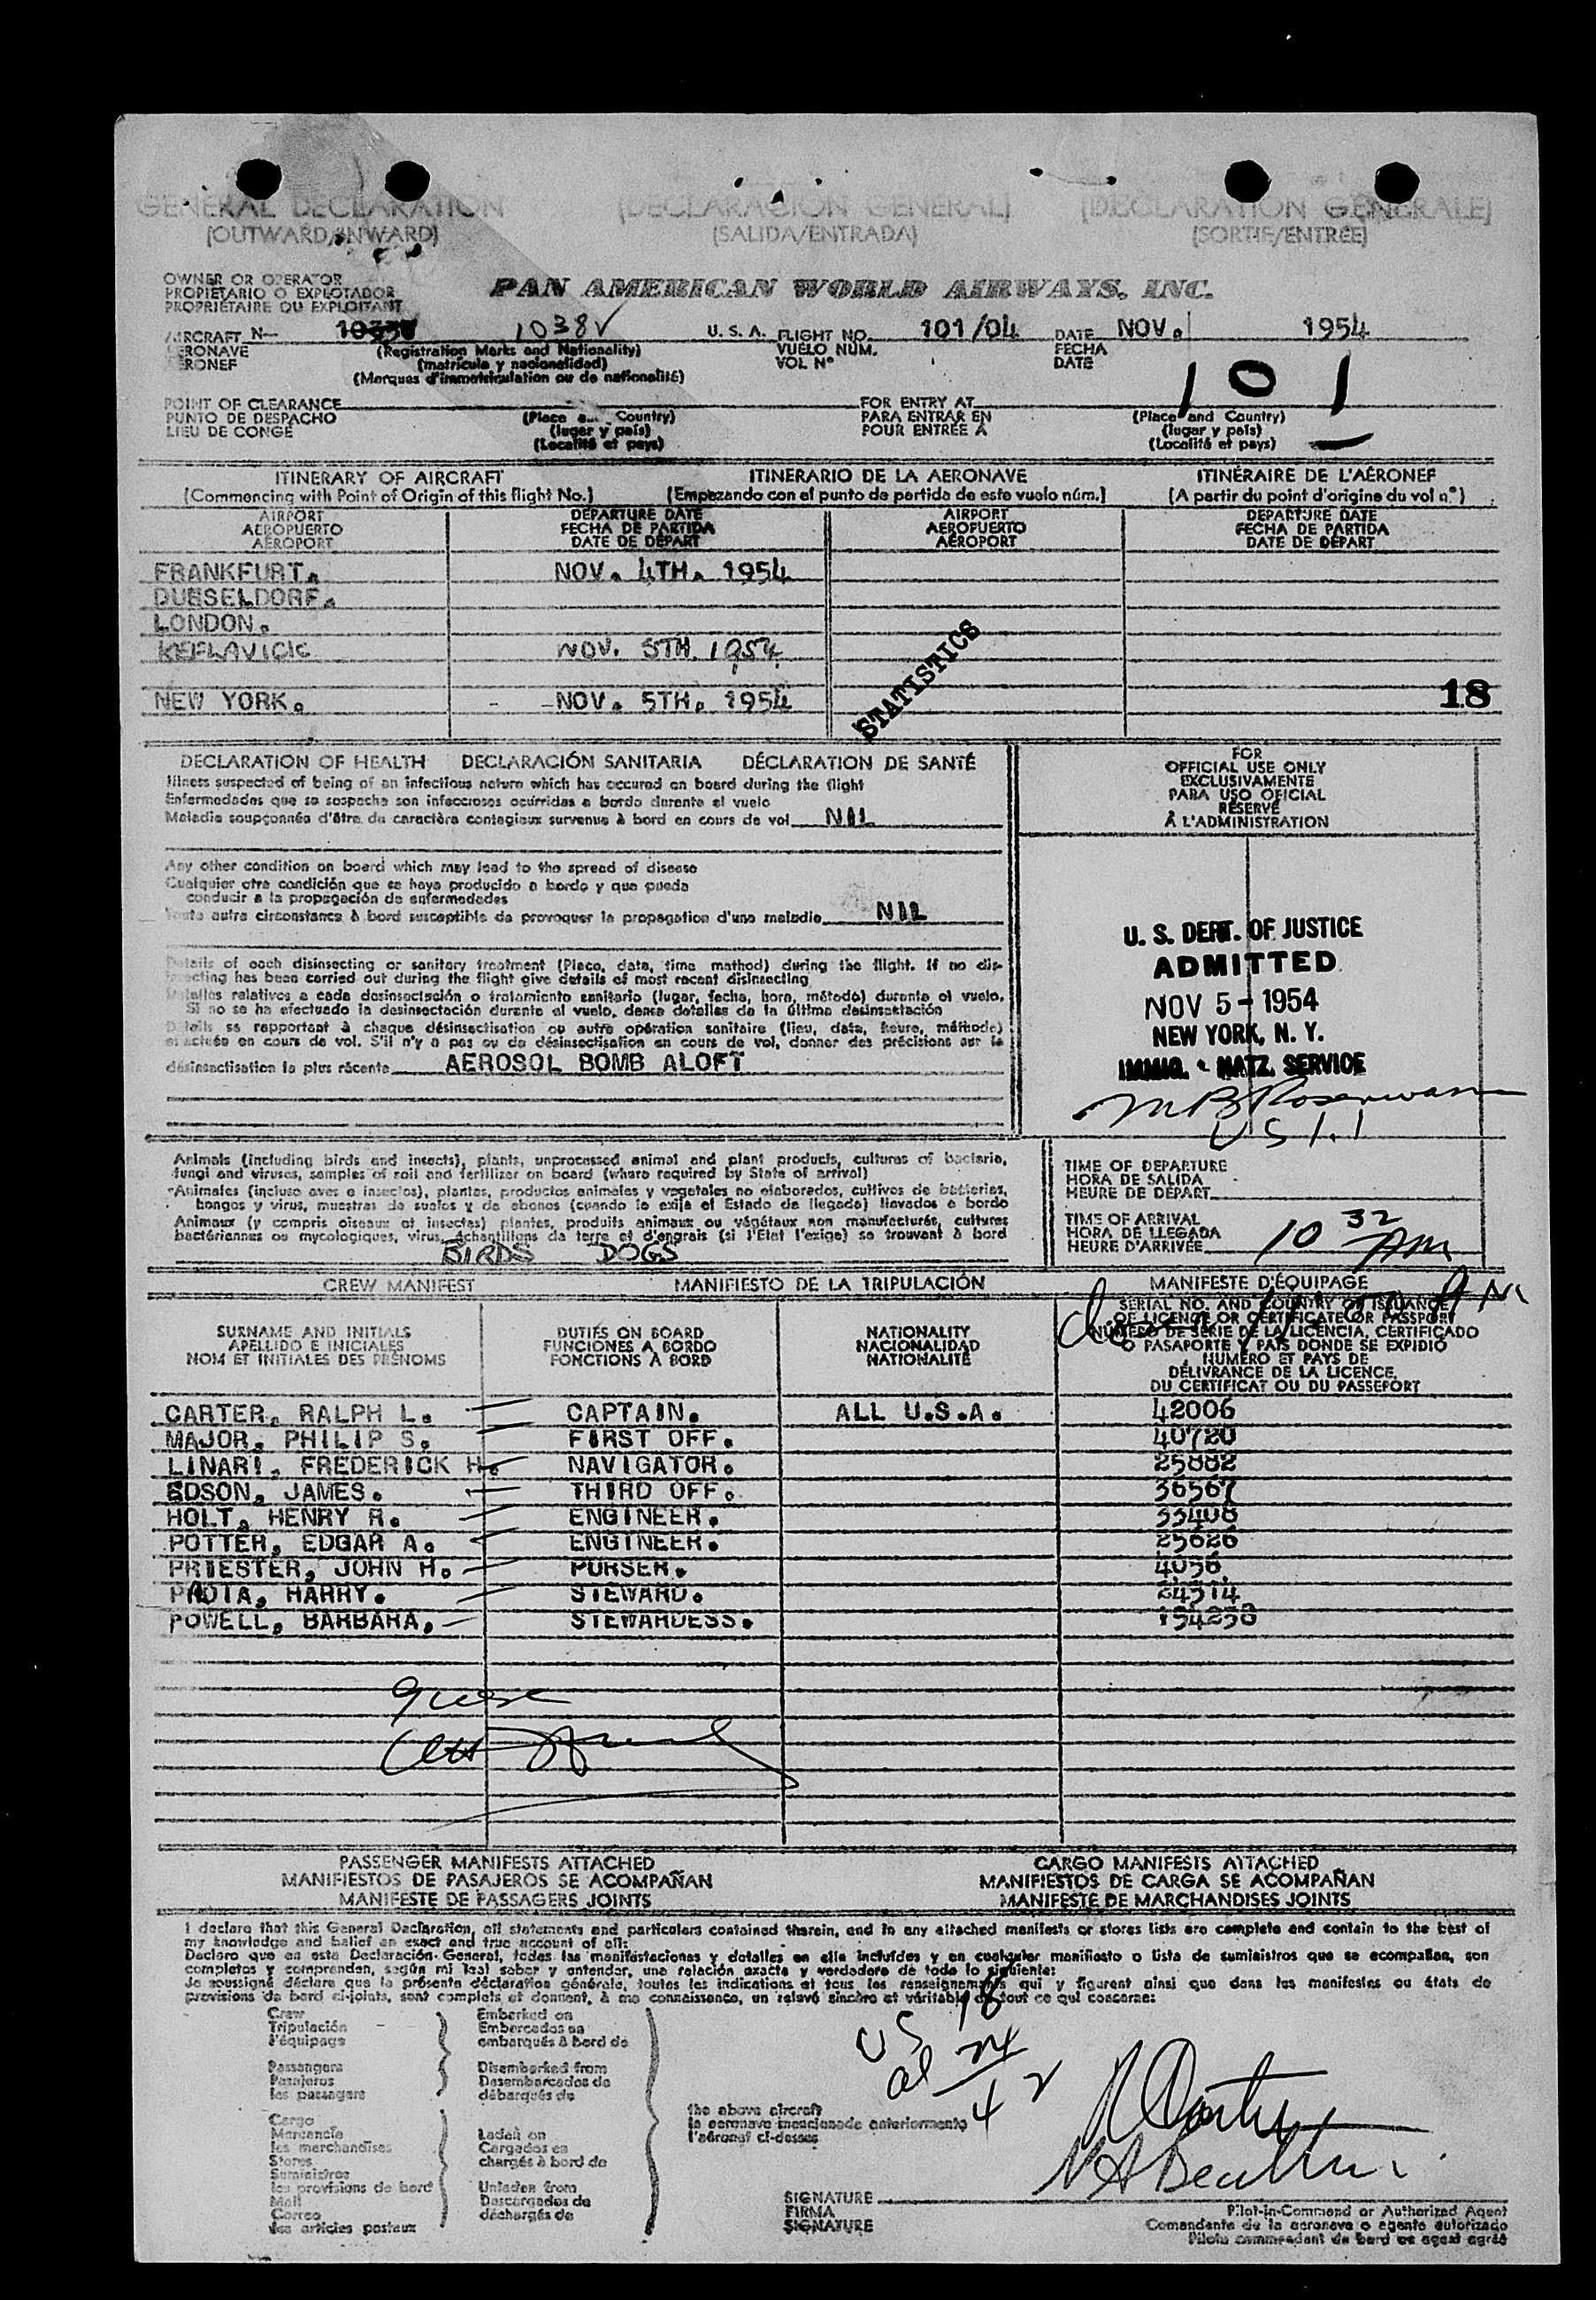 GENERAL DECLARATION [DECLARACIÓN GENERAL] [DECLARATION GÉNÉRALE]
[OUTWARD/INWARD] [SALIDA/ENTRADA] [SORTIE/ENTRÉE]
OWNER OR OPERATOR
PROPIETARIO O EXPLOTADOR
PROPRIÉTAIRE OU EXPLOITANT
PAN AMERICAN WORLD AIRWAYS, INC.
AIRCRAFT N— 1038V U. S. A. FLIGHT NO. 101/04 DATE NOV. 1954
AERONAVE (Registration Marks and Nationality) VUELO NÚM. FECHA
AÉRONEF (matrícula y nacionalidad) VOL Nº DATE
(Marques d'immatriculation ou de nationalité)
101
POINT OF CLEARANCE FOR ENTRY AT
PUNTO DE DESPACHO (Place and Country) PARA ENTRAR EN (Place and Country)
LIEU DE CONGÉ (lugar y país) POUR ENTRÉE À (lugar y país)
(Localité et pays) (Localité et pays)
ITINERARY OF AIRCRAFT ITINERARIO DE LA AERONAVE ITINÉRAIRE DE L'AÉRONEF
(Commencing with Point of Origin of this flight No.) (Empezando con el punto de partida de este vuelo núm.) (A partir du point d'origine du vol n.º)
AIRPORT DEPARTURE DATE AIRPORT DEPARTURE DATE
AEROPUERTO FECHA DE PARTIDA AEROPUERTO FECHA DE PARTIDA
AÉROPORT DATE DE DÉPART AÉROPORT DATE DE DÉPART
FRANKFURT. NOV. 4TH. 1954
DUESSELDORF.
LONDON.
KEFLAVICK NOV. 5TH. 1954
NEW YORK. NOV. 5TH. 1954
STATISTICS
18
DECLARATION OF HEALTH DECLARACIÓN SANITARIA DÉCLARATION DE SANTÉ
Illness suspected of being of an infectious nature which has occured on board during the flight
Enfermedades que se sospecha son infecciosas ocurridas a bordo durante el vuelo
Maladie soupçonnée d'être du caractère contagieux survenue à bord en cours de vol NIL
Any other condition on board which may lead to the spread of disease
Cualquier otra condición que se haya producido a bordo y que pueda
conducir a la propagación de enfermedades
Toute autre circonstance à bord susceptible de provoquer la propagation d'une maladie NIL
Details of each disinsecting or sanitary treatment (Place, date, time method) during the flight. If no dis-
insecting has been carried out during the flight give details of most recent disinsecting
Detalles relativos a cada desinsectación o tratamiento sanitario (lugar, fecha, hora, método) durante el vuelo.
Si no se ha efectuado la desinsectación durante el vuelo, dense detalles de la última desinsectación
Détails se rapportant à chaque désinsectisation ou autre opération sanitaire (lieu, date, heure, méthode)
effectuée en cours de vol. S'il n'y a pas eu de désinsectisation en cours de vol, donner des précisions sur la
désinsectisation la plus récente AEROSOL BOMB ALOFT
FOR
OFFICIAL USE ONLY
EXCLUSIVAMENTE
PARA USO OFICIAL
RÉSERVÉ
À L'ADMINISTRATION
U. S. DEPT. OF JUSTICE
ADMITTED
NOV 5 - 1954
NEW YORK, N. Y.
IMMIG. & NATZ. SERVICE
Animals (including birds and insects), plants, unprocessed animal and plant products, cultures of bacteria,
fungi and viruses, samples of soil and fertilizer on board (where required by State of arrival)
Animales (incluso aves e insectos), plantas, productos animales y vegetales no elaborados, cultivos de bacterias,
hongos y virus, muestras de suelos y de abonos (cuando lo exija el Estado de llegada) llevados a bordo
Animaux (y compris oiseaux et insectes) plantes, produits animaux ou végétaux non manufacturés, cultures
bactériennes ou mycologiques, virus, échantillons de terre et d'engrais (si l'Etat l'exige) se trouvant à bord
BIRDS DOGS
TIME OF DEPARTURE
HORA DE SALIDA
HEURE DE DÉPART
TIME OF ARRIVAL
HORA DE LLEGADA
HEURE D'ARRIVÉE 10 32 AM
CREW MANIFEST MANIFIESTO DE LA TRIPULACIÓN MANIFESTE D'ÉQUIPAGE
SURNAME AND INITIALS DUTIES ON BOARD NATIONALITY
APELLIDO E INICIALES FUNCIONES A BORDO NACIONALIDAD
NOM ET INITIALES DES PRÉNOMS FONCTIONS À BORD NATIONALITÉ
SERIAL NO. AND COUNTRY OF ISSUANCE
OF LICENCE OR CERTIFICATE OR PASSPORT
NÚMERO DE SERIE DE LA LICENCIA, CERTIFICADO
O PASAPORTE Y PAÍS DONDE SE EXPIDIÓ
NUMÉRO ET PAYS DE
DÉLIVRANCE DE LA LICENCE,
DU CERTIFICAT OU DU PASSEPORT
CARTER, RALPH L. CAPTAIN. ALL U.S.A. 42006
MAJOR, PHILIP S. FIRST OFF. 40720
LINARI, FREDERICK H. NAVIGATOR. 25882
EDSON, JAMES. THIRD OFF. 36567
HOLT, HENRY R. ENGINEER. 33408
POTTER, EDGAR A. ENGINEER. 25626
PRIESTER, JOHN H. PURSER. 4036
HARRY. STEWARD. 64514
POWELL, BARBARA, STEWARDESS. 154238
PASSENGER MANIFESTS ATTACHED CARGO MANIFESTS ATTACHED
MANIFIESTOS DE PASAJEROS SE ACOMPAÑAN MANIFIESTOS DE CARGA SE ACOMPAÑAN
MANIFESTE DE PASSAGERS JOINTS MANIFESTE DE MARCHANDISES JOINTS
I declare that this General Declaration, all statements and particulars contained therein, and in any attached manifests or stores lists are complete and contain to the best of
my knowledge and belief an exact and true account of all:
Declaro que en esta Declaración General, todas las manifestaciones y detalles en ella incluídos y en cualquier manifiesto o lista de suministros que se acompañan, son
completos y comprenden, según mi leal saber y entender, una relación exacta y verdadera de todo lo siguiente:
Je soussigné déclare que la présente déclaration générale, toutes les indications et tous les renseignements qui y figurent ainsi que dans les manifestes ou états de
provisions de bord ci-joints, sont complets et donnent, à ma connaissance, un relevé sincère et véritable de tout ce qui concerne:
Crew Embarked on
Tripulación Embarcados en
l'équipage embarqués à bord de
Passengers Disembarked from
Pasajeros Desembarcados de
les passagers débarqués de
US 18
al 24
42
the above aircraft
la aeronave mencionada anteriormente
l'aéronef ci-dessus
Cargo
Mercancía Laden on
les marchandises Cargados en
Stores chargés à bord de
Suministros
les provisions de bord Unladen from
Mail Descargados de
Correo déchargés de
les articles postaux
SIGNATURE
FIRMA
SIGNATURE
Pilot-in-Command or Authorized Agent
Comandante de la aeronave o agente autorizado
Pilote commandant de bord ou agent agréé